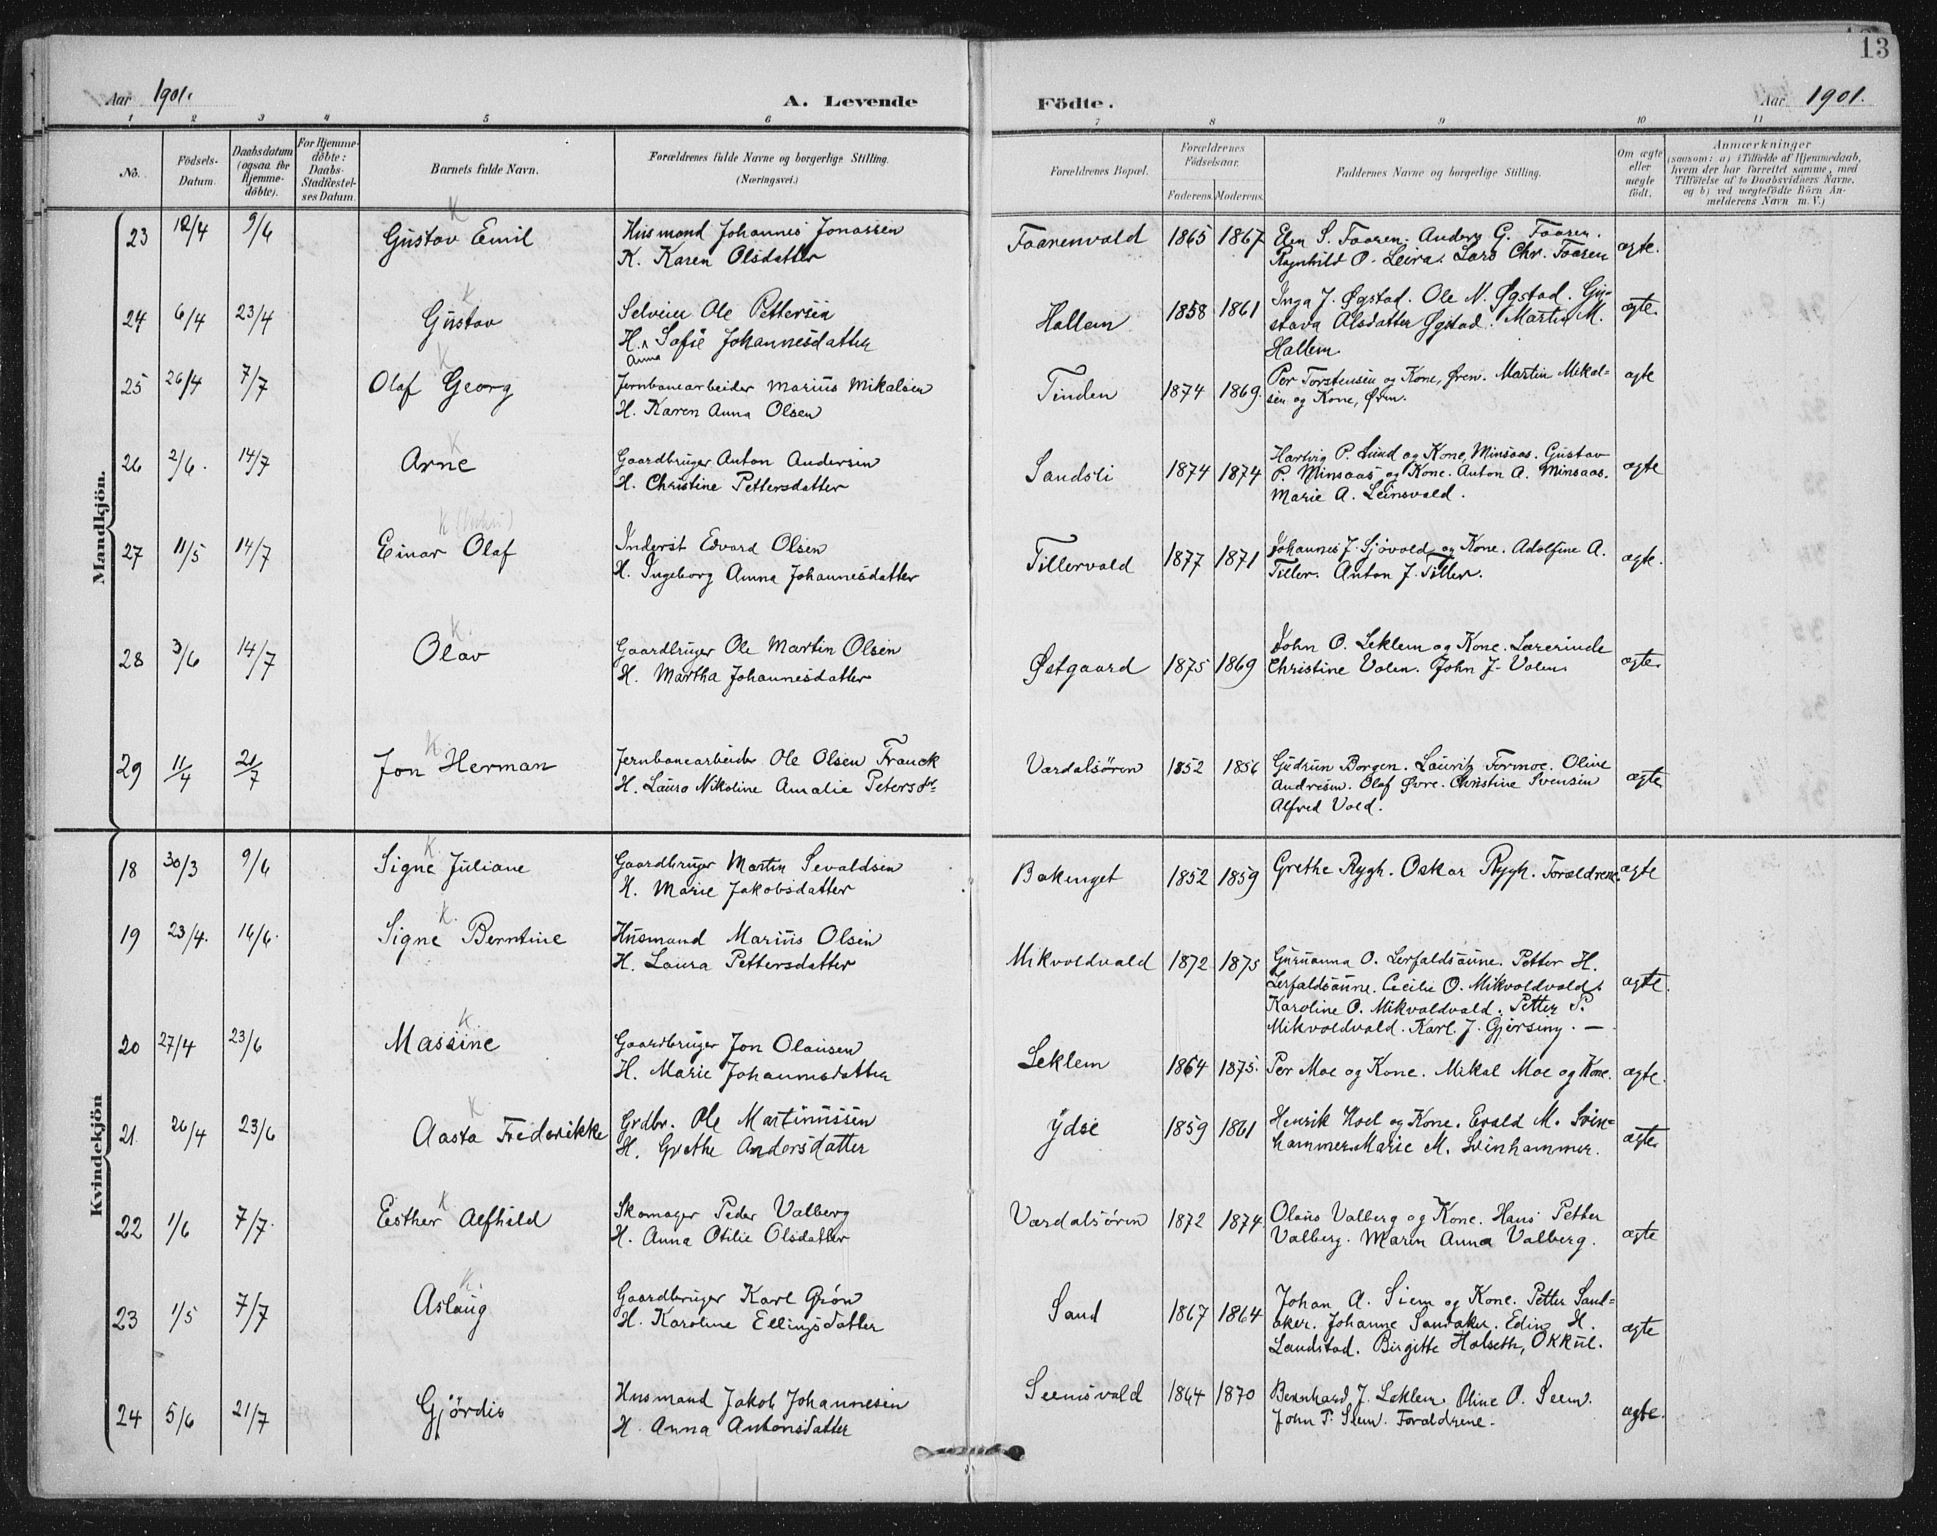 13
Aar 1901.
A. Levende
Födte.
Aar 1901.
1 2 3 4 5 6 7 8 9 10 11
No.
Födsels-Datum.
Daabsdatum (ogsaa for Hjemme-döbte).
For Hjemme-döbte: Daabs-Stadfæstel-ses Datum.
Barnets fulde Navn.
Forældrenes fulde Navne og borgerlige Stilling. (Næringsvei.)
Forældrenes Bopæl.
Forældrenes Födselsaar.
Faderens. Moderens.
Faddernes Navne og borgerlige Stilling.
Om ægte eller uægte födt.
Anmærkninger
(saasom: a) i Tilfælde af Hjemmedaab, hvem der har forrettet samme, med Tilföielse af to Daabsvidners Navne, og b) ved uegtefödte Börn An-melderens Navn m. V.)
Mandkjön.
23 12/4 9/6 Gustav Emil Husmand Johannes Jonassen Faarenvald 1865 1867 Elen S. Faaren. Anders G. Faaren. ægte.
K. Karen Olsdatter Ragnhild O. Leira. Lars Chr. Faaren
24 6/4 23/4 Gustav Selveier Ole Pettersen Hallem 1858 1861 Inga J. Øgstad. Ole N. Øgstad. Gu-
H. Anna Sofie Johannesdatter stava Olsdatter Øgstad. Martin M. ægte.
Hallem.
25 26/4 7/7 Olaf Georg Jernbanearbeider Marius Mikalsen Tinden 1874 1869. Per Torstensen og Kone, Øren. Martin Mikal- ægte
H. Karen Anna Olsen sen og Kone, Øren.
26 2/6. 14/7 Arne Gaardbruger Anton Andersen Sandsli 1874 1874 Hartvig P. Lund og Kone, Minsaas. Gustav
H. Christine Pettersdatter P. Minsaas og Kone. Anton A. Minsaas. ægte
Marie A. Leinsvald.
27 11/5 14/7 Einar Olaf Inderst Edvard Olsen Tillervald 1877 1871 Johannes J. Sjøvold og Kone. Adolfine A. ægte.
H. Ingeborg Anna Johannesdatter Tiller. Anton J. Tiller.
28 3/6 14/7 Olav Gaardbruger Ole Martin Olsen Østgaard 1875 1869 John O. Leklem og Kone. Lærerinde ægte.
H. Martha Johannesdatter Christine Volen. John J. Volen.
29 11/4 21/7 Jon Herman Jernbanearbeider Ole Olsen Franck Værdalsören 1852 1856 Gudrun Borgen. Lauritz Formoe. Oline
H. Laura Nikoline Amalie Petersdtr Andresen. Olaf Øvre. Christine Svensen ægte
Alfred Vold.
Kvindekjön
18 30/3 9/6 Signe Juliane Gaardbruger Martin Sevaldsen Bakinget 1852 1859 Grethe Rygh. Oskar Rygh. Forældrene. ægte
H. Marie Jakobsdatter
19 23/4. 16/6. Signe Berntine Husmand Marius Olsen Mikvoldvald 1872 1875 Guruanna O. Lerfaldsaune. Petter H.
H. Laura Pettersdatter Lerfaldsaune. Cecilie O. Mikvoldvald. ægte.
Karoline O. Mikvoldvald. Petter P.
Mikvoldvald. Karl J. Gjersing. —
20 27/4 23/6 Massine Gaardbruger Jon Olausen Leklem 1864 1875. Per Moe og Kone. Mikal Moe og Kone. ægte.
H. Marie Johannesdatter
21. 26/4 23/6 Aasta Frederikke Grdbr. Ole Martinussen Ydse 1859 1861 Henrik Hoel og Kone. Evald M. Svin-
H. Grethe Andersdatter hammer. Marie M. Svinhammer. ægte.
22 1/6 7/7. Esther Alfhild Skomager Peder Valberg Værdalsören 1872 1874. Olaus Valberg og Kone. Hans Petter
H. Anna Otilie Olsdatter Valberg. Maren Anna Valberg. ægte
23 1/5 7/7 Aslaug Gaardbruger Karl Grön Sand 1867 1864 Johan A. Siem og Kone. Petter Sand-
H. Karoline Ellingsdatter aker. Johanne Sandaker. Edin H. ægte
Landstad. Birgitte Holseth, Okkul.
24 5/6 21/7 Gjördis Husmand Jakob Johannesen Seemsvald 1864 1870 Bernhard J. Leklem Oline O. Seem.
H. Anna Antonsdatter John P. Seem. Forældrene. ægte.